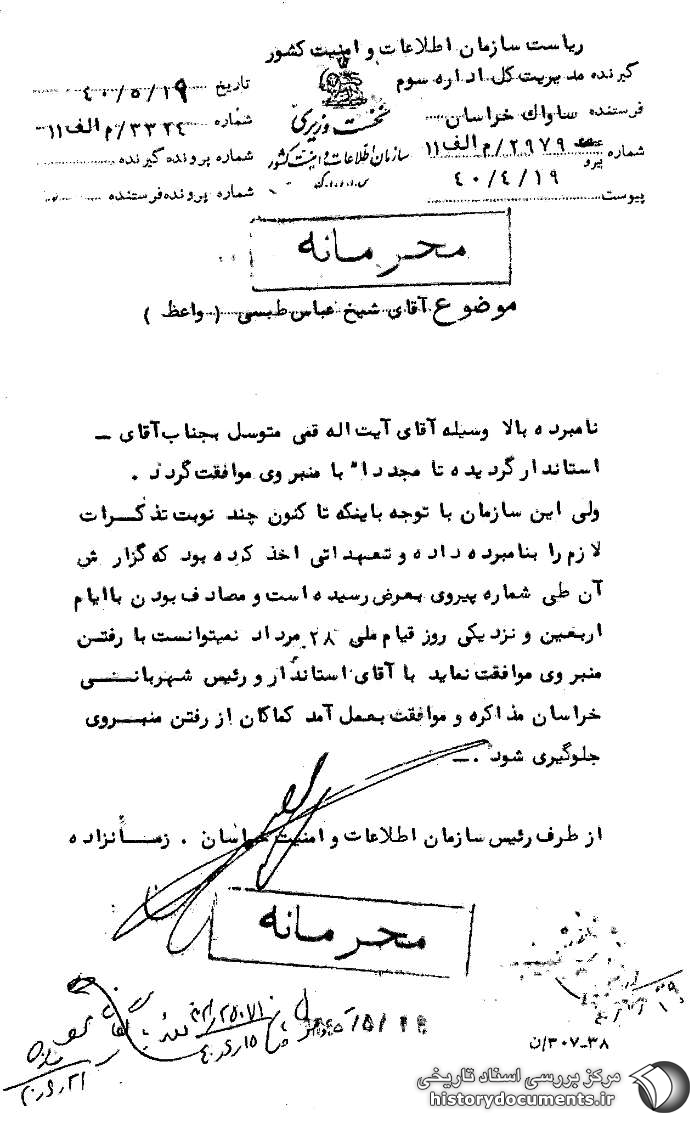 ریاست سازمان اطلاعات و امنیت کشور
گیرنده مدیریت کل اداره سوم
فرستنده ساواک خراسان
شماره ۲۹۷۹/م الف ۱۱
پیرو
۴۰/۴/۱۹
پیوست
نخست وزیری
سازمان اطلاعات و امنیت کشور
س.ا.و.ا.ک
تاریخ ۴۰/۵/۱۹
شماره ۳۳۲۴/م الف ۱۱
شماره پرونده گیرنده
شماره پرونده فرستنده
محرمانه
موضوع آقای شیخ عباس طبسی (واعظ)
نامبرده بالا وسیله آقای آیت اله قمی متوسل بجناب آقای –
استاندار گردیده تا مجددا" با منبر وی موافقت گردد .
ولی این سازمان با توجه باینکه تا کنون چند نوبت تذکرات
لازم را بنامبرده داده و تعهداتی اخذ کرده بود که گزارش
آن طی شماره پیروی بعرض رسیده است و مصادف بودن با ایام
اربعین و نزدیکی روز قیام ملی ۲۸ مرداد نمیتوانست با رفتن
منبر وی موافقت نماید با آقای استاندار و رئیس شهربانی
خراسان مذاکره و موافقت بعمل آمد کماکان از رفتن منبر وی
جلوگیری شود .–
از طرف رئیس سازمان اطلاعات و امنیت خراسان . زمانزاده
محرمانه
۳۰۷-۳۸/ن
مرکز بررسی اسناد تاریخی
historydocuments.ir